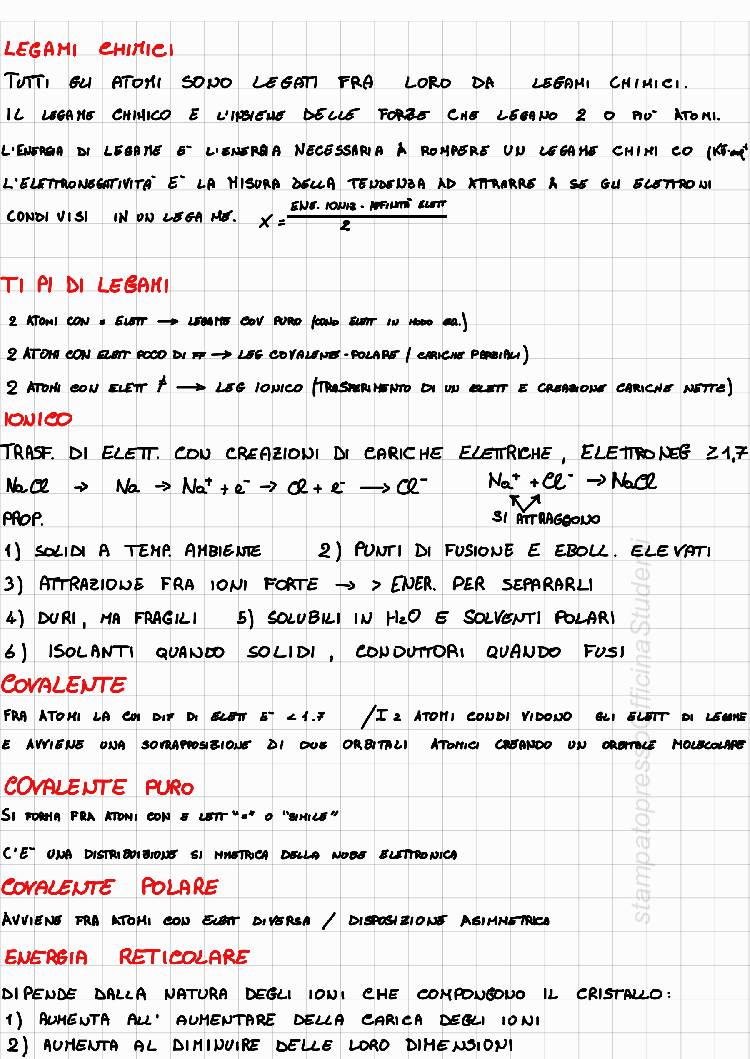 LEGAMI CHIMICI
TUTTI GLI ATOMI SONO LEGATI FRA LORO DA LEGAMI CHIMICI.
IL LEGAME CHIMICO E L'INSIEME DELLE FORZE CHE LEGANO 2 O PIU' ATOMI.
L'ENERGIA DI LEGAME E' L'ENERGIA NECESSARIA A ROMPERE UN LEGAME CHIMI CO
L'ELETTRONEGATIVITA' E' LA MISURA DELLA TENDENZA AD ATTRARRE A SE GLI ELETTRONI
CONDI VISI IN UN LEGA ME. X = ENE. IONIZ - AFFINITA' ELETT / 2
TI PI DI LEGAMI
2 ATOMI CON = ELETT → LEGAME COV PURO (COND ELETT IN MODO EQ.)
2 ATOMI CON ELETT POCO DI FF → LEG COVALENTE-POLARE / CARICHE PARZIALI)
2 ATOMI CON ELETT ≠ → LEG IONICO (TRASFERIMENTO DI UN ELETT E CREAZIONE CARICHE NETTE)
IONICO
TRASF. DI ELETT. CON CREAZIONI DI CARICHE ELETTRICHE, ELETTRONEG ≥1,7
NaCl → Na → Na⁺ + e⁻ → Cl + e⁻ → Cl⁻ Na⁺ + Cl⁻ → NaCl
PROP. SI ATTRAGGONO
1) SOLIDI A TEMP. AMBIENTE 2) PUNTI DI FUSIONE E EBOLL. ELEVATI
3) ATTRAZIONE FRA IONI FORTE → > ENER. PER SEPARARLI
4) DURI, MA FRAGILI 5) SOLUBILI IN H2O E SOLVENTI POLARI
6) ISOLANTI QUANDO SOLIDI, CONDUTTORI QUANDO FUSI
COVALENTE
FRA ATOMI LA CUI DIF DI ELETT E' <1.7 / I 2 ATOMI CONDI VIDONO GLI ELETT DI LEGAME
E AVVIENE UNA SOVRAPPOSIZIONE DI DUE ORBITALI ATOMICI CREANDO UN ORBITALE MOLECOLARE
COVALENTE PURO
SI FORMA FRA ATOMI CON E LETT "=" O "SIMILE"
C'E' UNA DISTRIBUZIONE SI MMETRICA DELLA NUBE ELETTRONICA
COVALENTE POLARE
AVVIENE FRA ATOMI CON ELETT DIVERSA / DISPOSIZIONE ASIMMETRICA
ENERGIA RETICOLARE
DIPENDE DALLA NATURA DEGLI IONI CHE COMPONGONO IL CRISTALLO:
1) AUMENTA ALL' AUMENTARE DELLA CARICA DEGLI IONI
2) AUMENTA AL DIMINUIRE DELLE LORO DIMENSIONI
stampatopressoOfficinaStudenti